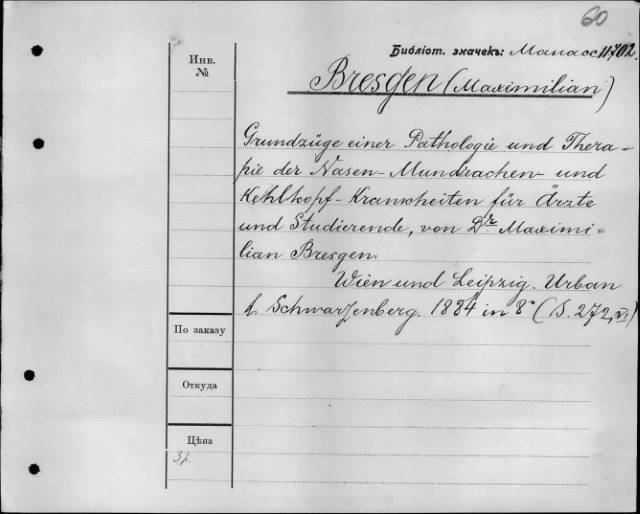 60
Библіот. значекъ: Манасс 11702.
Инв.
№
Bresgen (Maximilian)
Grundzüge einer Pathologie und Thera-
pie der Nasen-Mundrachen- und
Kehlkopf-Krankheiten für Ärzte
und Studierende, von Dr Maximi-
lian Bresgen.
Wien und Leipzig. Urban
& Schwarzenberg. 1884 in 8° (S. 272, VI)
По заказу
Откуда
Цѣна
3р